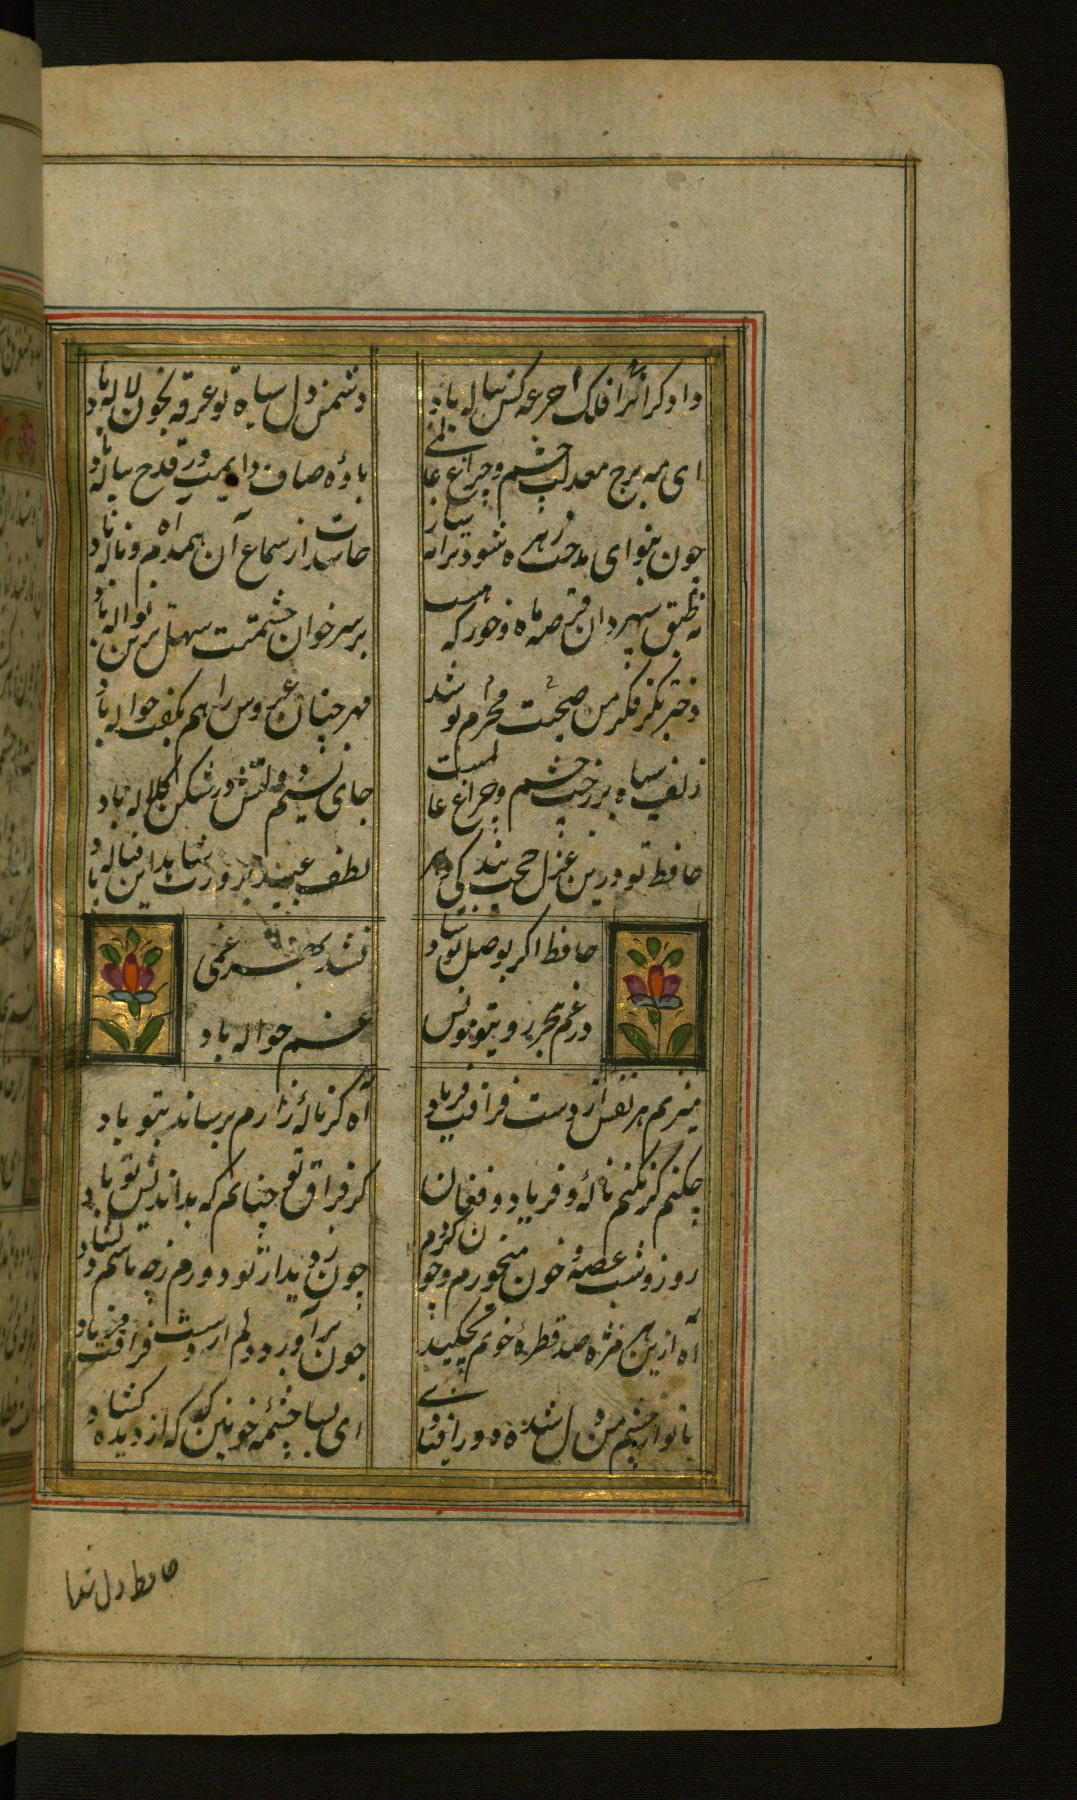 دادگرا ترا فلک جرعه کش پیاله باد
دشمن دل سیاه تو غرقه بخون لاله باد
ای مه برج معدلت چشم و چراغ عالمی
باده صاف دایمت در قدح پیاله باد
چون بنوای مدحتت زهره شود ترانه ساز
حاسدت از سماع آن همدم آه و ناله باد
نه طبق سپهر و آن قرصه ماه و خور که هست
بر سر خوان حشمتت سهل ترین نواله باد
دختر بکر فکر من محرم صحبت تو شد
مهر چنان عروس را هم بکفت حواله باد
زلف سیاه پرخمت چشم و چراغ عالمست
جای نسیم دولتش در شکن کلاله باد
حافظ تو درین غزل حجت بندگی
لطف عبید پرورت شاهد این قباله باد
حافظ اگر بوصل تو شاد
نشد بهر غمی
در غم هجر روی تو مونس
غم حواله باد
میزنم هر نفس از دست فراقت فریاد
آه گر ناله زارم نرساند بتو باد
چکنم گر نکنم ناله و فریاد و فغان
کز فراق تو چنانم که بداندیش تو باد
روز و شب غصه و خون میخورم و چون نخورم
چون ز دیدار تو دورم بچه باشم دلشاد
از بن هر مژه صد قطره خونم بچکید
چون برآورد دلم از دست فراقت فریاد
تا تو از چشم من دل شده دور افتادی
ای بسا چشمه خونین که که از دیده گشاد
حافظ دل شدا